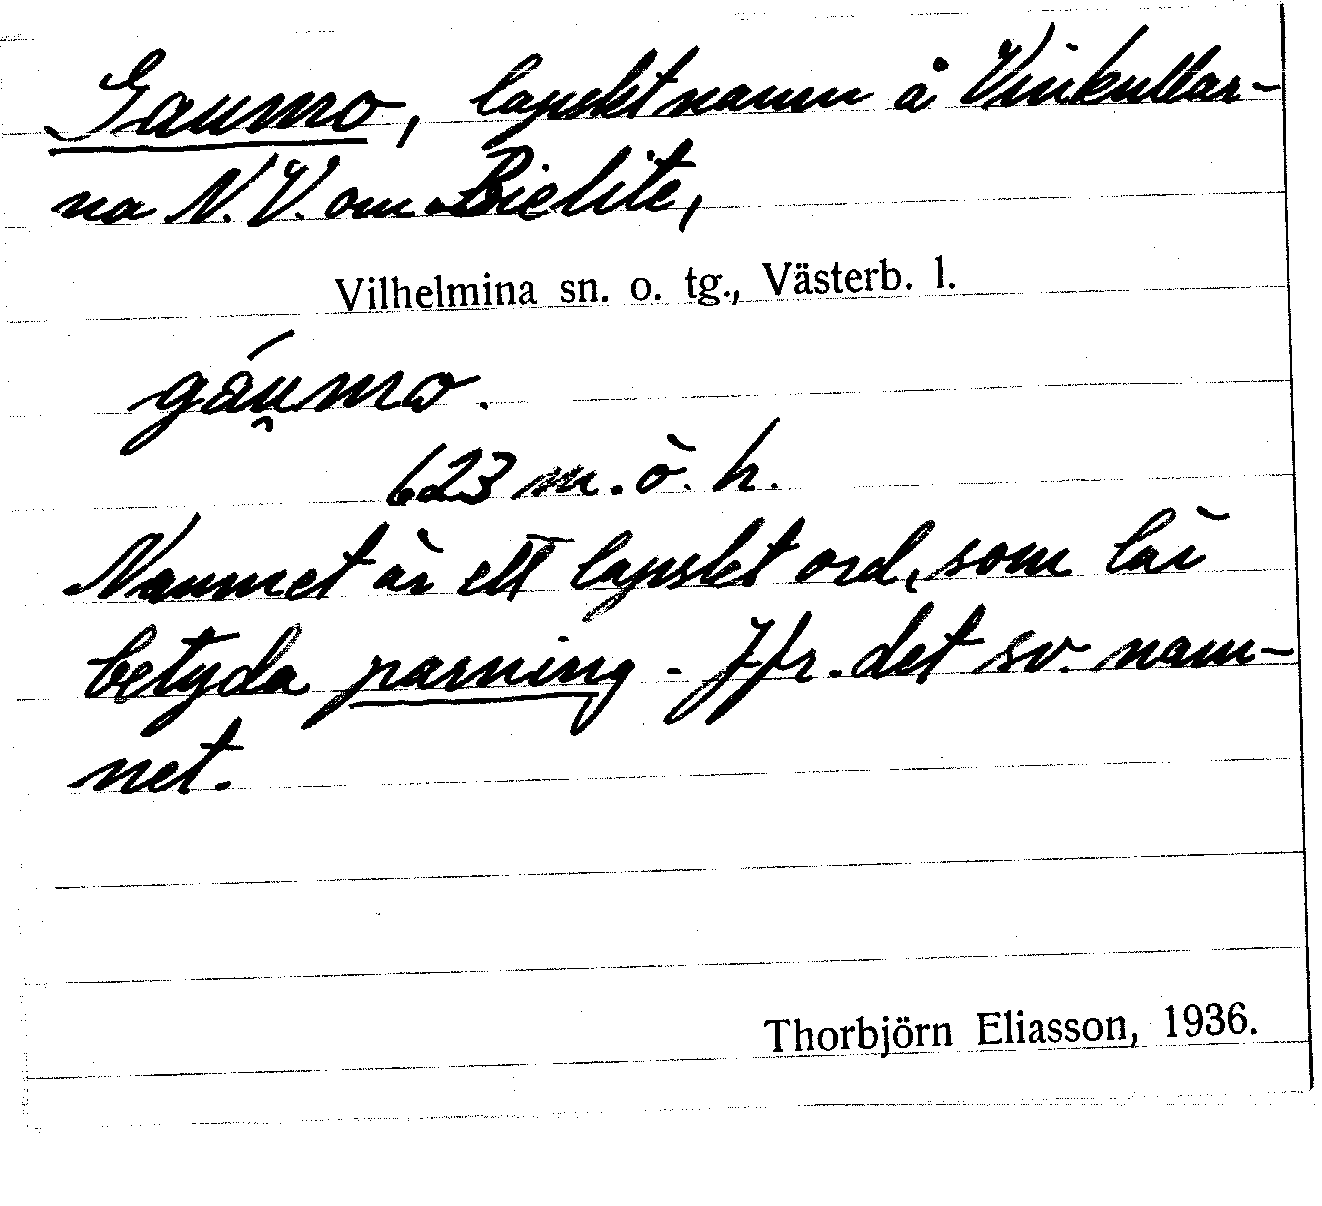 Gaumo, lapskt namn å Vinkullar-
na N.V. om Bielite,
Vilhelmina sn. o. tg., Västerb. l.
gáu̯mo.
623 m. ö. h.
Namnet är ett lapskt ord, som lär
betyda parning - Jfr. det sv. nam-
net.
Thorbjörn Eliasson, 1936.